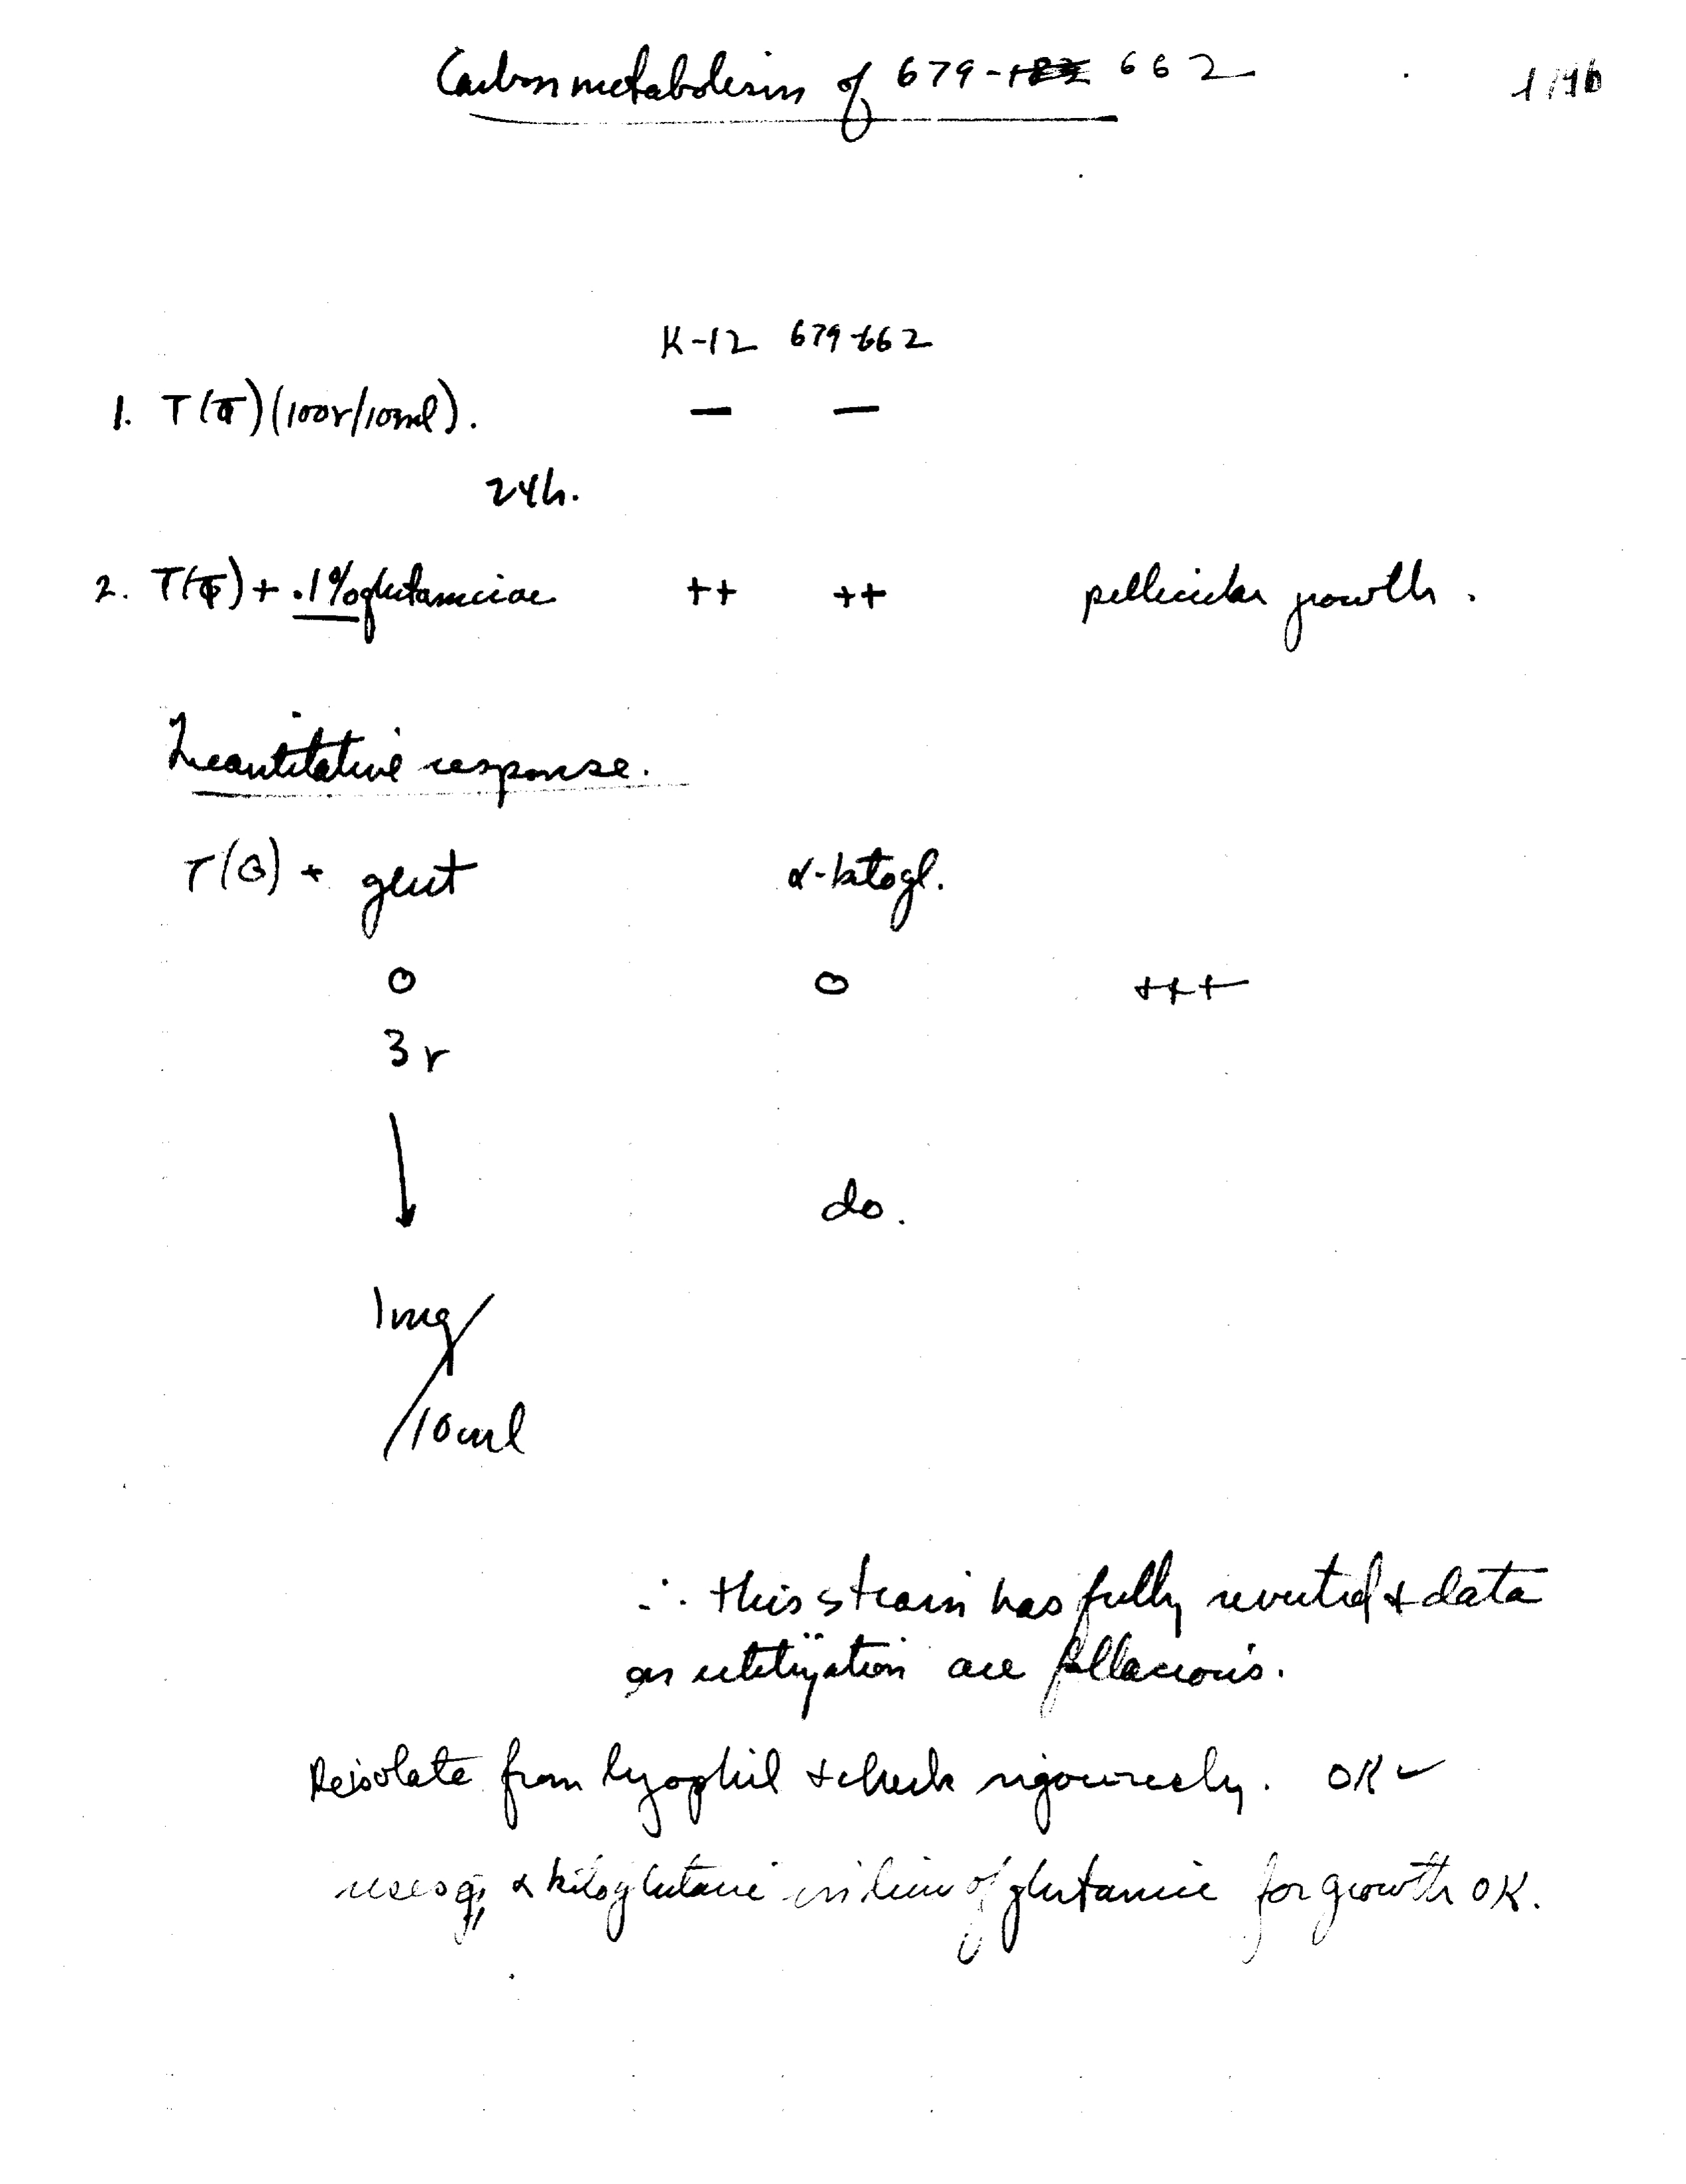 Carbon metabolism of 679- 662
K-12 679-662
1. T( ) (100r/10ml). — —
24h.
2. T( ) + .1% glutamic ac ++ ++ pellicular growth.
Quantitative response.
T(G) + glut α-ketogl.
0 0 +++
3r
do.
1mg/
/10ml
∴ this strain has fully reverted + data
on utilization are fallacious.
Reisolate from lyophil + check rigourously. OK ✓
uses α ketoglutaric in lieu of glutamic for growth OK.